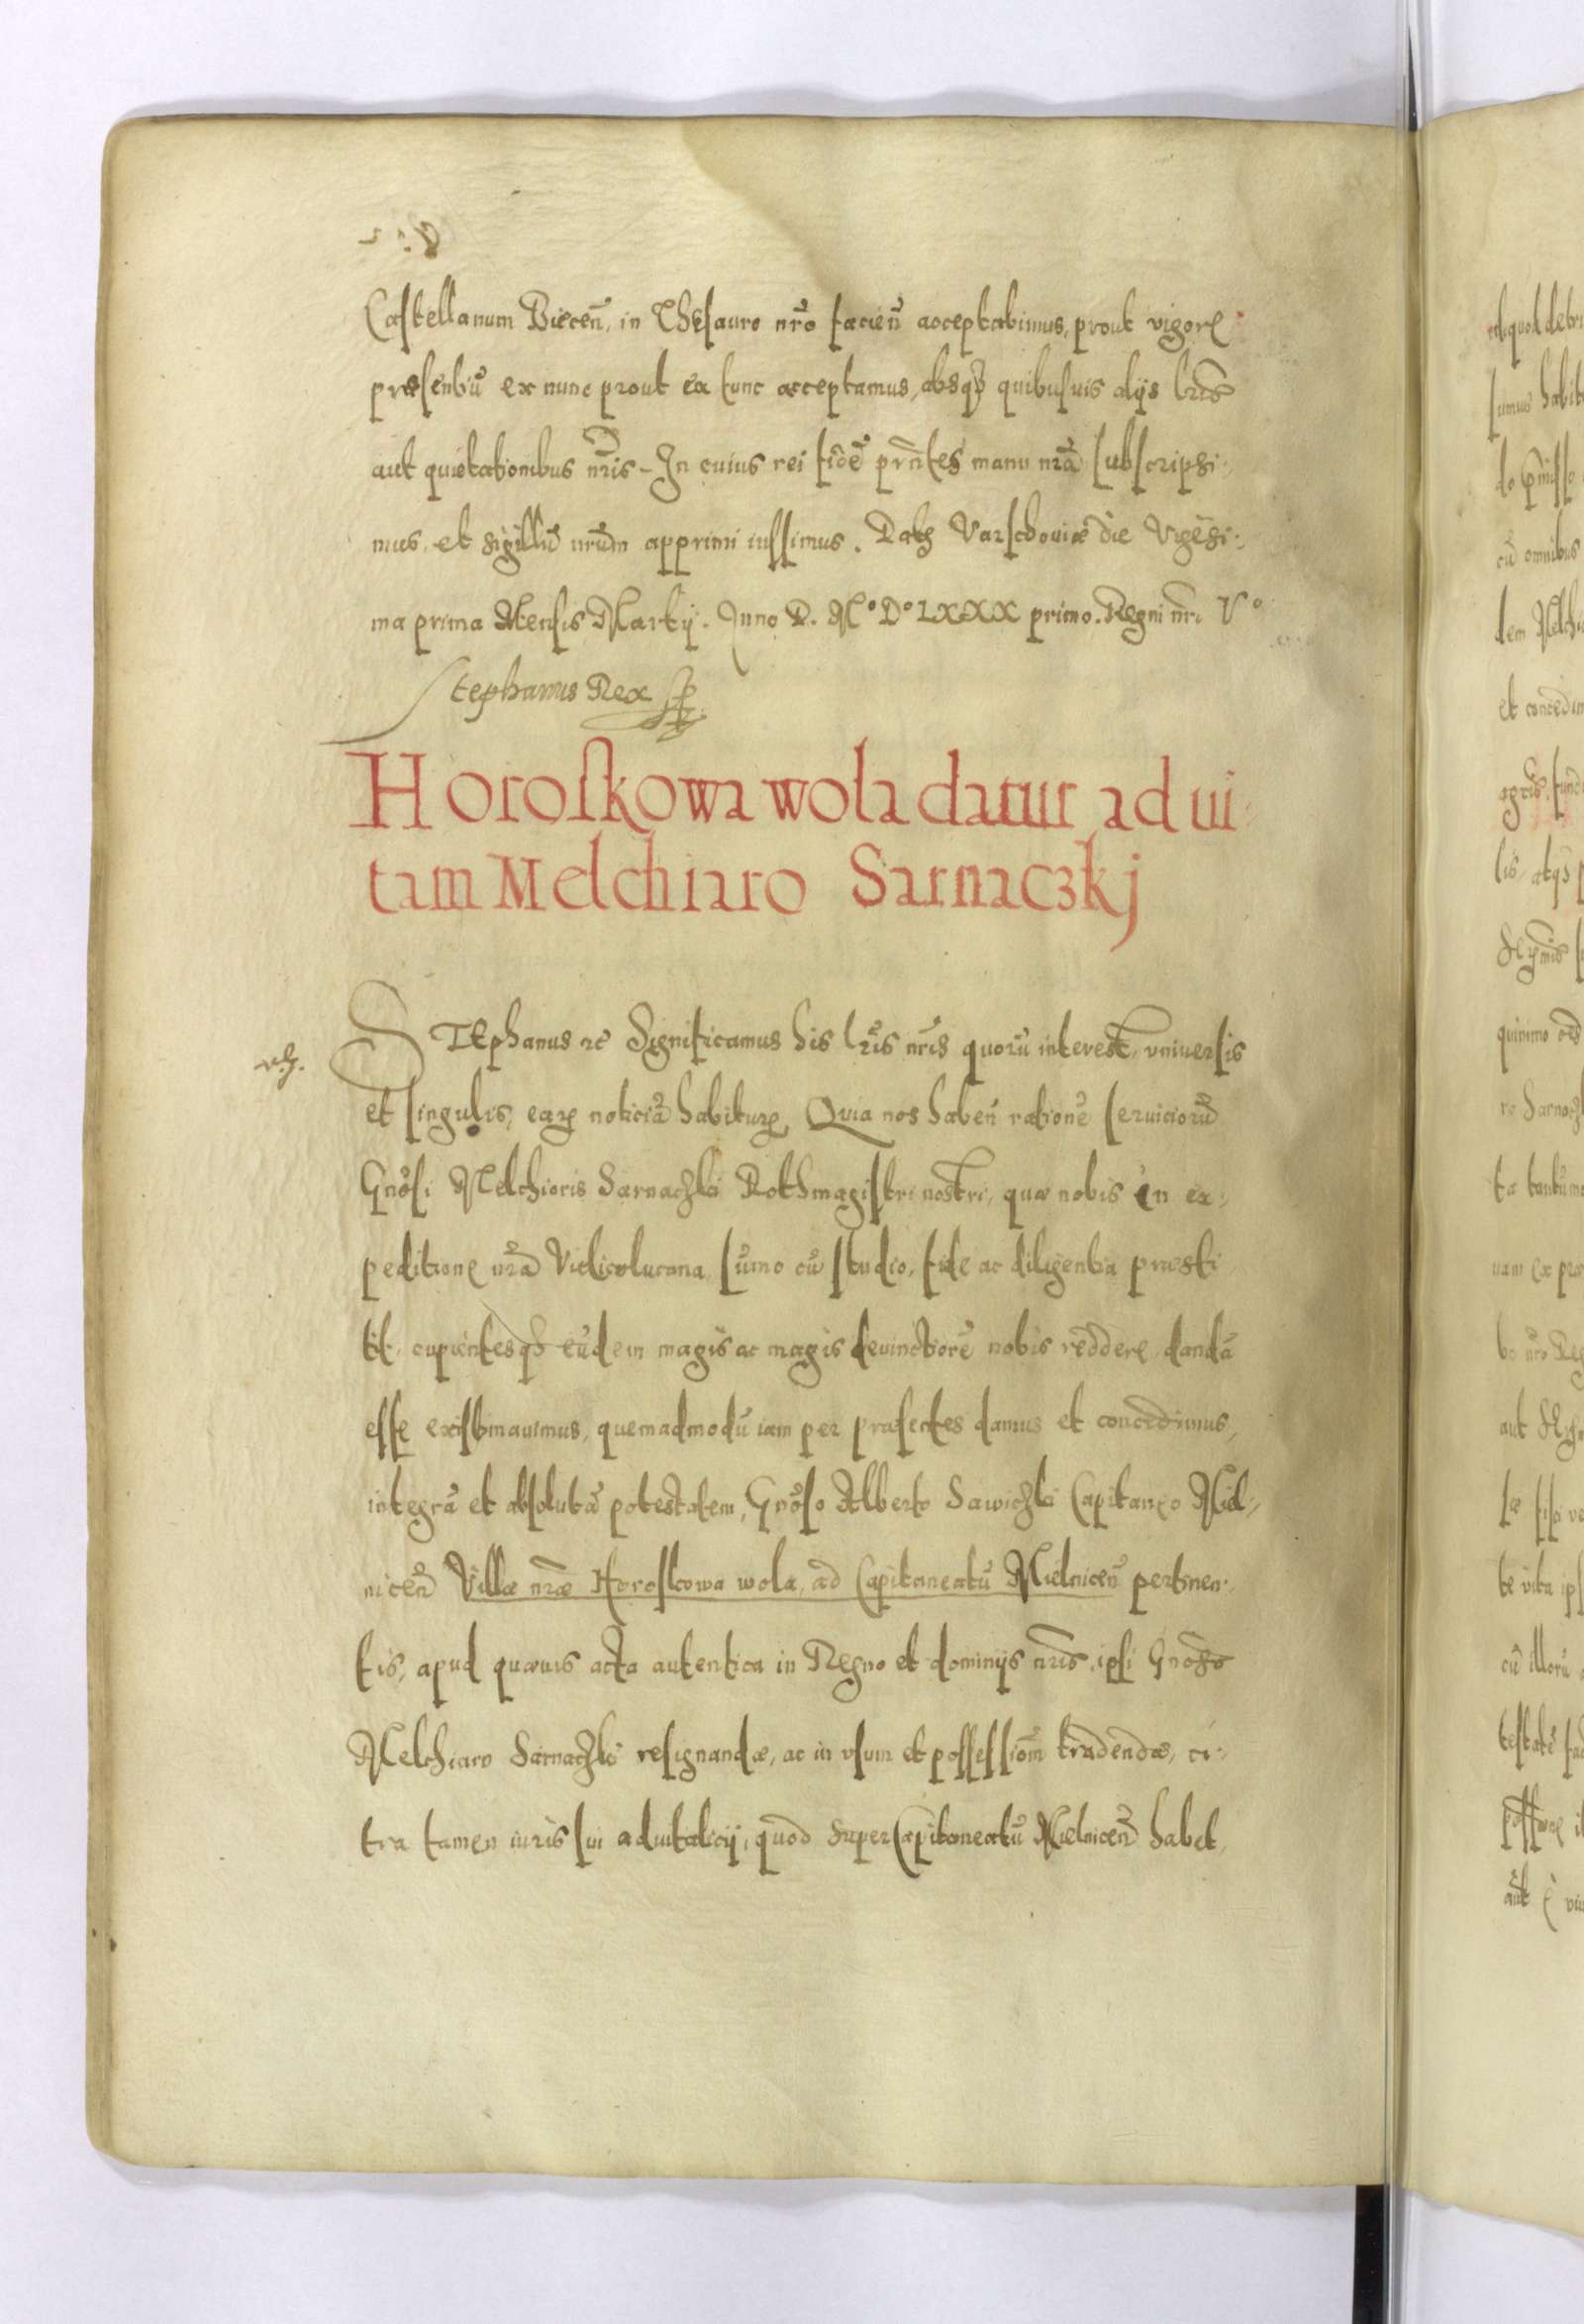 Castellanum Biecen̄, in Thesauro nr̃o facien̄ acceptabimus, prout vigore
præsentiū ex nunc prout ex tunc acceptamus, absq₃ quibusuis alijs lr̃is
aut quietationibus nr̃is - In cuius rei fidē pñtes manu nr̃a subscripsi:
mus, et sigillū nr̃um apprimi iussimus. Datꝭ Varschouiæ die Vigesi:
ma prima Mensis Martij. Anno D. M° D° LXXX primo. Regni nr̃i V°
Stephanus Rex
Horoskowa wola datur ad ui:
tam Melchiaro Sarnaczkj
STEphanus ꝛc Significamus his lr̃is nr̃is quorū interest, vniuersis
et singulis, earꝝ noticiā habiturꝭ, Quia nos haben̄ rationē seruiciorū
Gnõsi Melchioris Sarnaczki Rothmagistri nostri, quæ nobis in ex:
peditione nr̃a Vielicolucana sūmo cū studio, fide ac diligentia præsti
tit, cupientesq₃ eūdem magis ac magis deuinctiorē nobis reddere, dandā
esse existimauimus, quemadmodū iam per præsentes damus et concedimus,
integrā et absolutā potestatem, Gnõso Alberto Sawiczki Capitaneo Miel:
nicen̄ Villæ nr̃æ Horoskowa wola, ad Capitaneatū Mielnicen̄ pertinen:
tis, apud quæuis acta autentica in Regno et dominijs nr̃is, ipsi Gnõso
Melchiaro Sarnaczki resignandæ, ac in vsum et possessiom̄ tradendæ, ci:
tra tamen iuris sui aduitalicij, quod super Capitaneatū Mielnicen̄ habet,